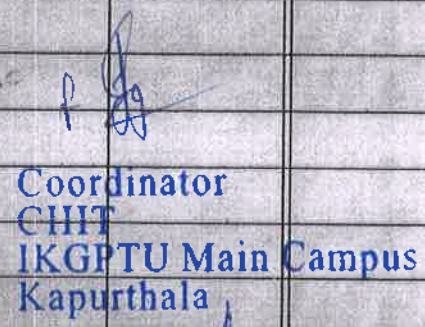 Coordinator
CHHT
IKGPTU Main Campus
Kapurthala